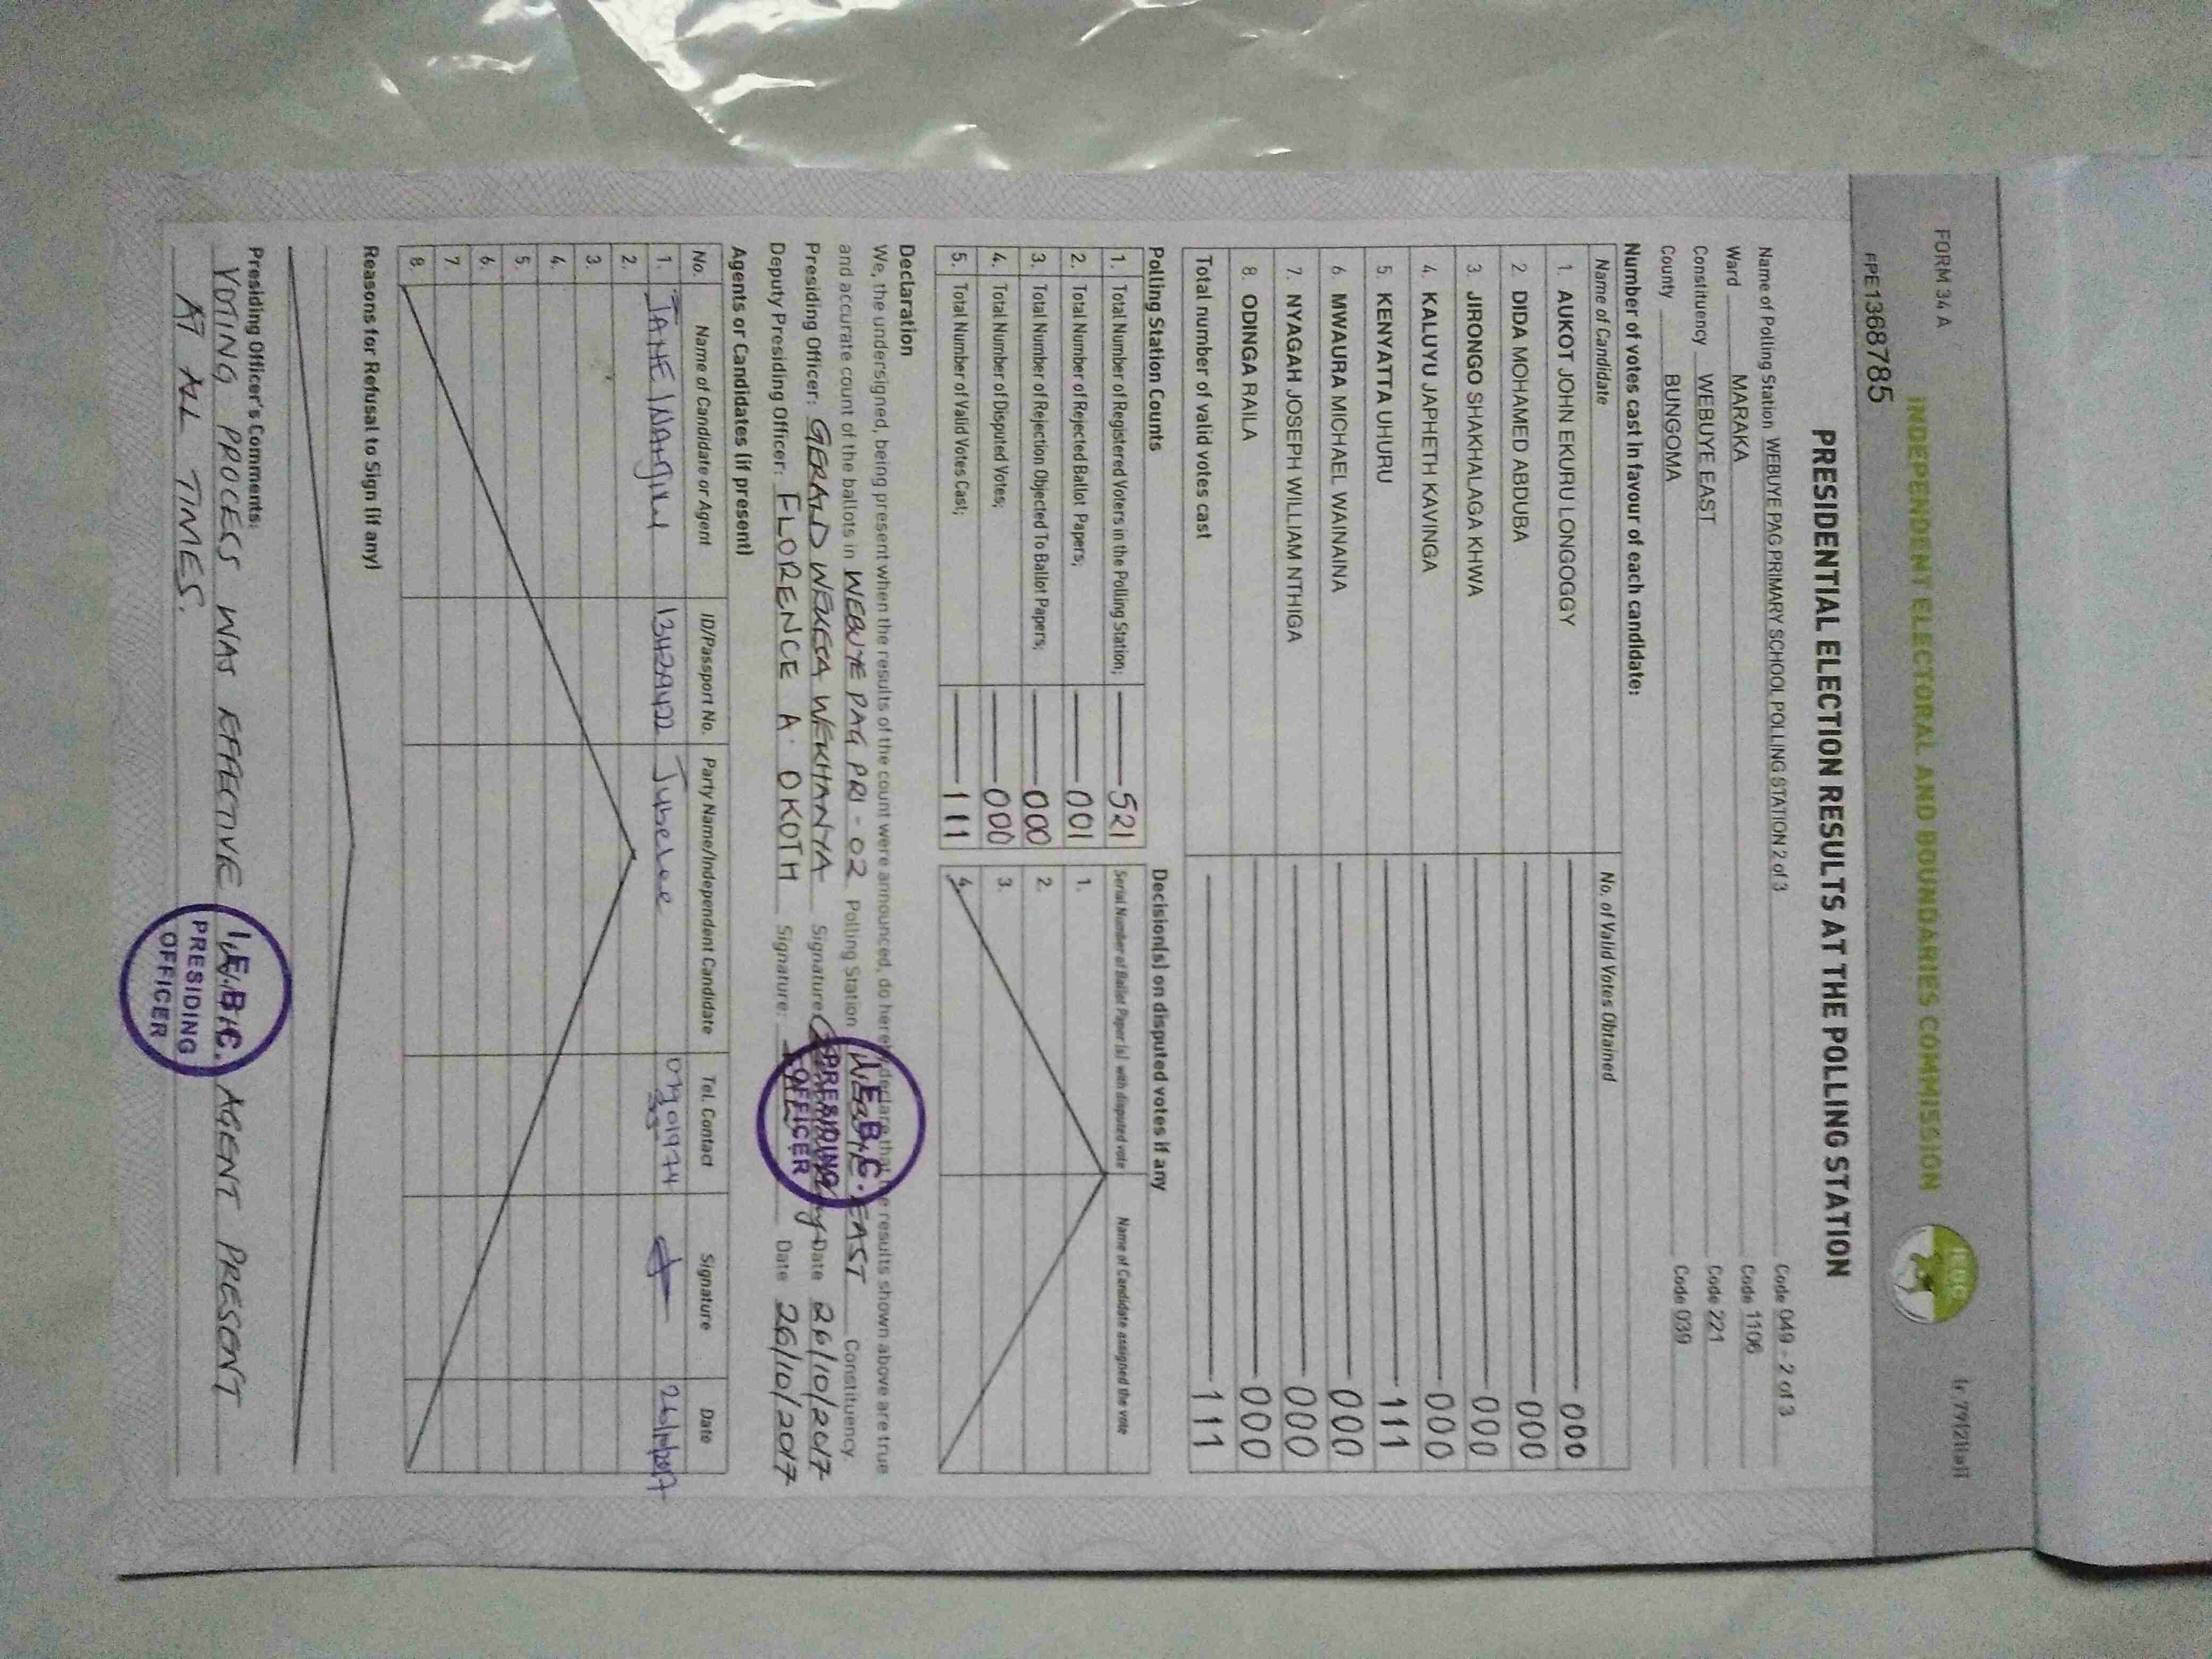 FORM 34 A
INDEPENDENT ELECTORAL AND BOUNDARIES COMMISSION
IEBC
FPE1368785
PRESIDENTIAL ELECTION RESULTS AT THE POLLING STATION
Name of Polling Station WEBUYE PAG PRIMARY SCHOOL POLLING STATION 2 of 3 Code 049 - 2 of 3
Ward MARAKA Code 1106
Constituency WEBUYE EAST Code 221
County BUNGOMA Code 039
Number of votes cast in favour of each candidate:
Name of Candidate No. of Valid Votes Obtained
1. AUKOT JOHN EKURU LONGOGGY 000
2. DIDA MOHAMED ABDUBA 000
3. JIRONGO SHAKHALAGA KHWA 000
4. KALUYU JAPHETH KAVINGA 000
5. KENYATTA UHURU 111
6. MWAURA MICHAEL WAINAINA 000
7. NYAGAH JOSEPH WILLIAM NTHIGA 000
8. ODINGA RAILA 000
Total number of valid votes cast 111
Polling Station Counts
1. Total Number of Registered Voters in the Polling Station; 521
2. Total Number of Rejected Ballot Papers; 001
3. Total Number of Rejection Objected To Ballot Papers; 000
4. Total Number of Disputed Votes; 000
5. Total Number of Valid Votes Cast; 111
Decision(s) on disputed votes if any
Serial Number of Ballot Paper (s) with disputed vote Name of Candidate assigned the vote
1.
2.
3.
4.
Declaration
We, the undersigned, being present when the results of the count were announced, do hereby declare that the results shown above are true
and accurate count of the ballots in WEBUYE PAG PRI - 02 Polling Station WEBUYE EAST Constituency.
Presiding Officer: GERALD WEKESA WEKHANYA Signature Date 26/10/2017
Deputy Presiding Officer: FLORENCE A. OKOTH Signature: Date 26/10/2017
I.E.B.C. PRESIDING OFFICER
Agents or Candidates (if present)
No. Name of Candidate or Agent ID/Passport No. Party Name/Independent Candidate Tel. Contact Signature Date
1. JANE Jubelee
2.
3.
4.
5.
6.
7.
8.
Reasons for Refusal to Sign (if any)
Presiding Officer's Comments:
VOTING PROCESS WAS EFFECTIVE AGENT PRESENT
AT ALL TIMES.
I.E.B.C. PRESIDING OFFICER